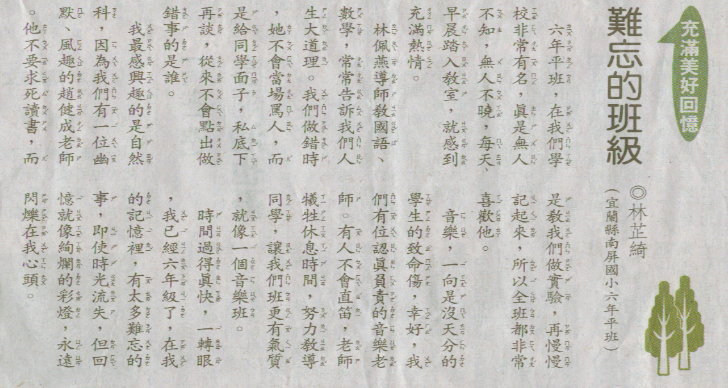 充滿美好回憶
難忘的班級
◎林芷綺
(宜蘭縣南屏國小六年平班)
六年平班,在我們學
校非常有名,真是無人
不知,無人不曉,每天、
早晨踏入教室,就感到
充滿熱情。
林佩燕導師教國語、
數學,常常告訴我們人
生大道理。我們做錯時
,她不會當場罵人,而
是給同學面子,私底下
再談,從來不會點出做
錯事的是誰。
我最感興趣的是自然
科,因為我們有一位幽
默、風趣的趙健成老師
。他不要求死讀書,而
是教我們做實驗,再慢慢
記起來,所以全班都非常
喜歡他。
音樂,一向是沒天分的
學生的致命傷,幸好,我
們有位認真負責的音樂老
師。有人不會直笛,老師
犧牲休息時間,努力教導
同學,讓我們班更有氣質
,就像一個音樂班。
時間過得真快,一轉眼
,我已經六年級了,在我
的記憶裡,有太多難忘的
事,即使時光流失,但回
憶就像絢爛的彩燈,永遠
閃爍在我心頭。